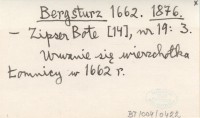 Bergsturz 1662. 1876.
– Zipser Bote [14], nr 19: 3.
Urwanie się wierzchołka
Łomnicy w 1662 r.